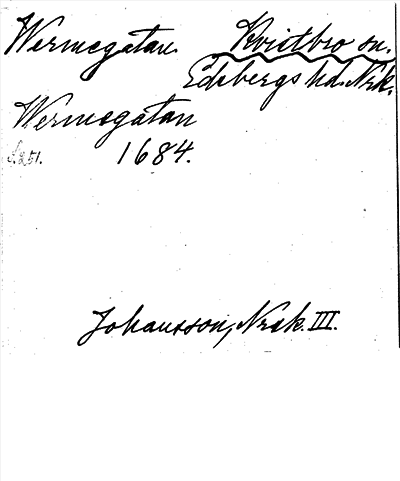 Wermegatan. Kvistbro sn.
Edsbergs hd. Nrk.
Wermegatan
s. 251. 1684.
Johansson, Nrsk. III.